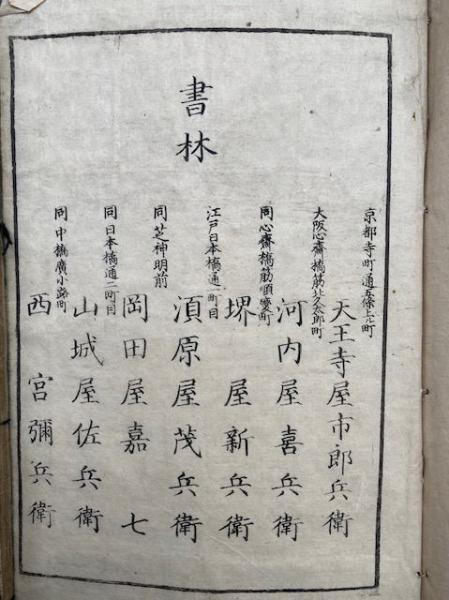 書林
京都寺町通五條上ル町
天王寺屋市郎兵衛
大阪心齋橋筋北久太郎町
河内屋喜兵衛
同心齋橋筋順慶町
堺屋新兵衛
江戸日本橋通一町目
須原屋茂兵衛
同芝神明前
岡田屋嘉七
同日本橋通二町目
山城屋佐兵衛
同中橋廣小路町
西宮彌兵衛